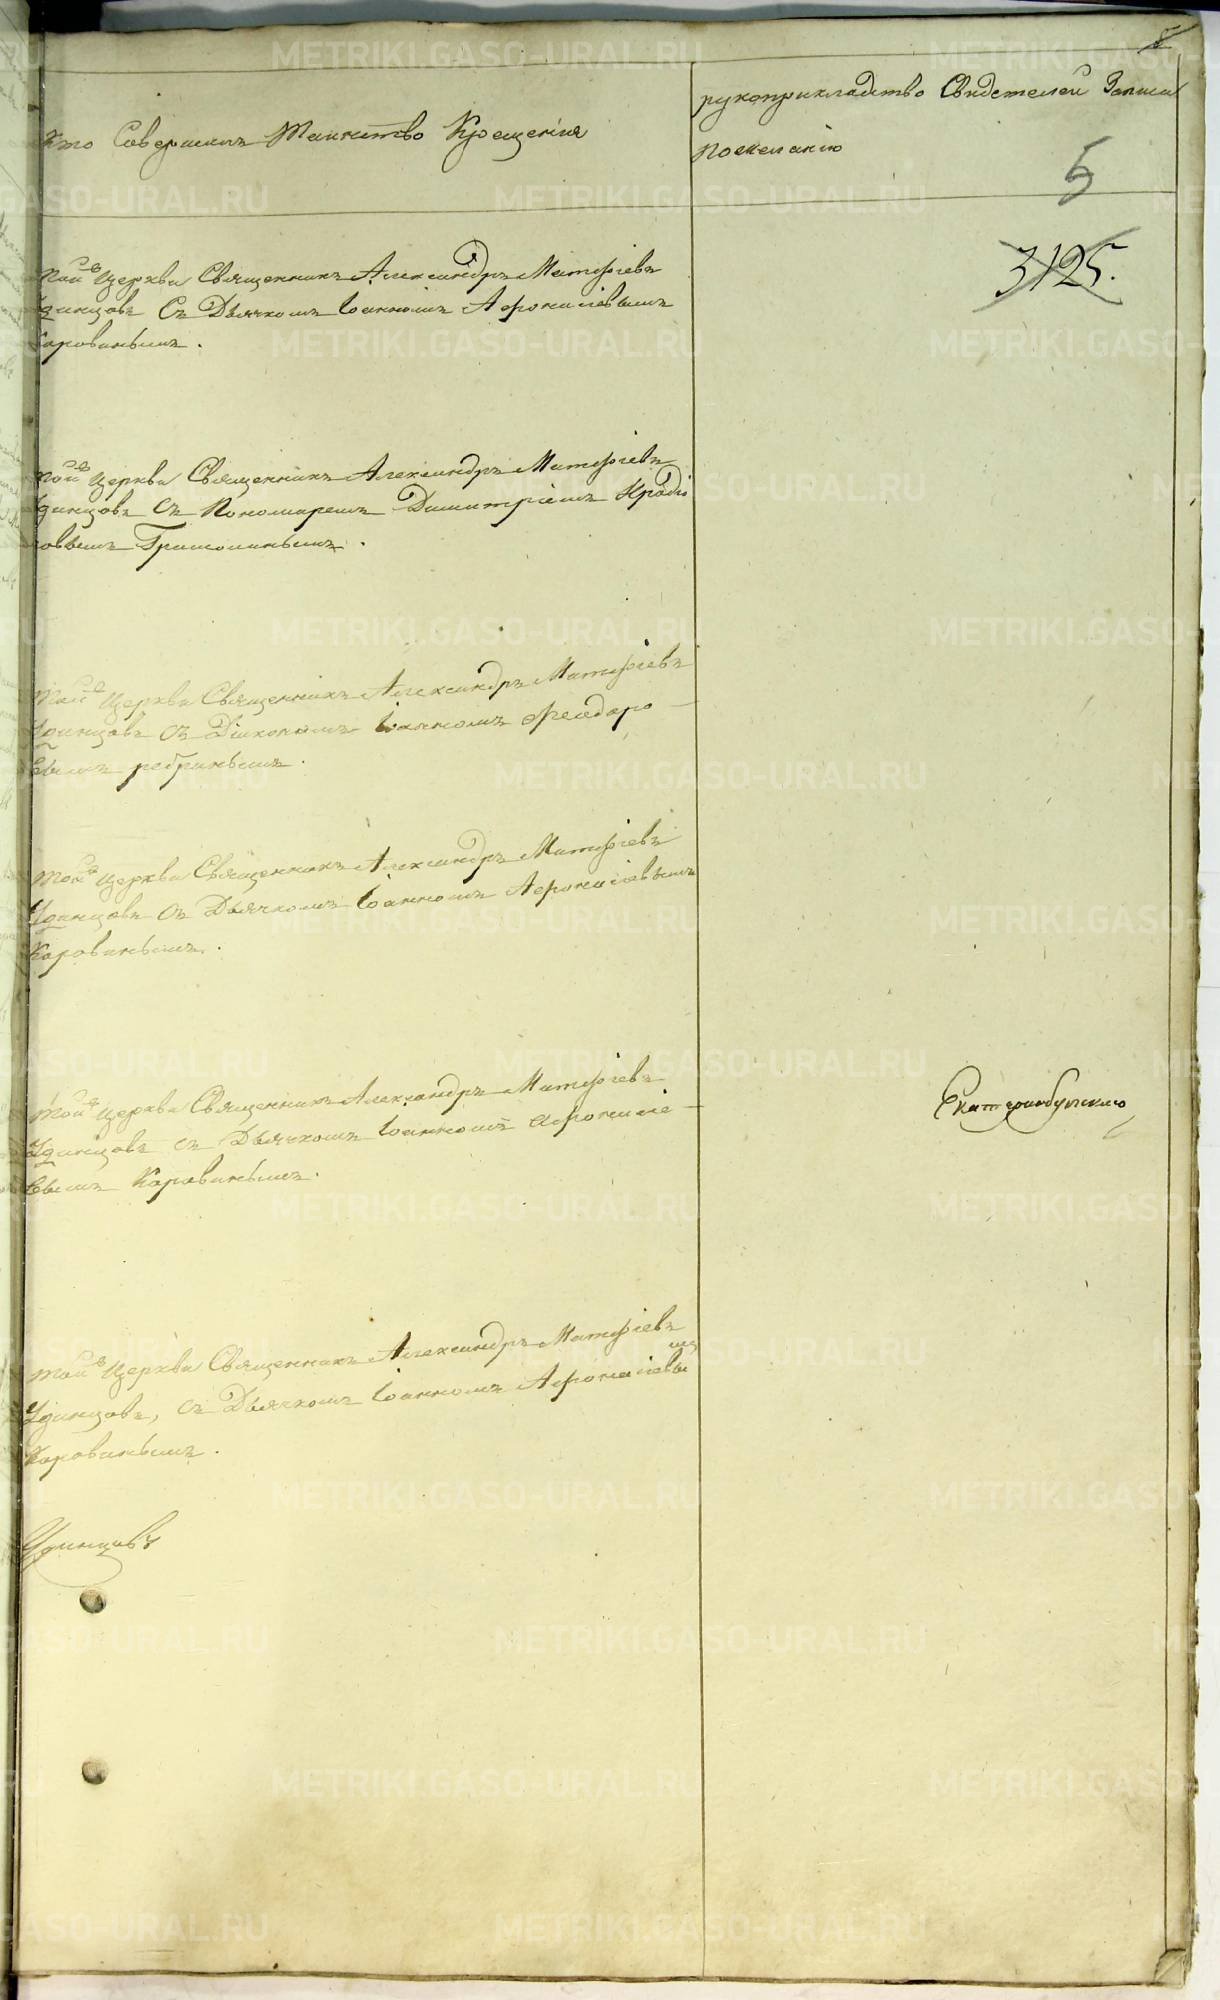 8
Кто Совершилъ Таинство Крещенія
рукоприкладство Свидетелей Записи
Пожеланію
5
3125.
Той же Церкви Священникъ Александръ Матфіевъ
Удинцовъ Съ Дьячкомъ Іоанномъ Афонасіевымъ
Каровинымъ.
Той же Церкви Священникъ Александръ Матфіевъ
Удинцовъ Съ Пономаремъ Димитріемъ
Той же Церкви Священникъ Александръ Матфіевъ
Удинцовъ съ Діакономъ Іоанномъ Феодоро
вымъ
Той же Церкви Священникъ Александръ Матфіевъ
Удинцовъ съ Дьячкомъ Іоанномъ Афонасіевымъ
Каровинымъ.
Той же Церкви Священникъ Александръ Матфіевъ
Удинцовъ съ Дьячкомъ Іоанномъ Афонасіе
вымъ Каровинымъ.
Екатеринбургскаго
Той же Церкви Священникъ Александръ Матфіевъ
Удинцовъ, съ Дьячкомъ Іоанномъ Афонасіевымъ
Каровинымъ.
Удинцовъ
METRIKI.GASO-URAL.RU